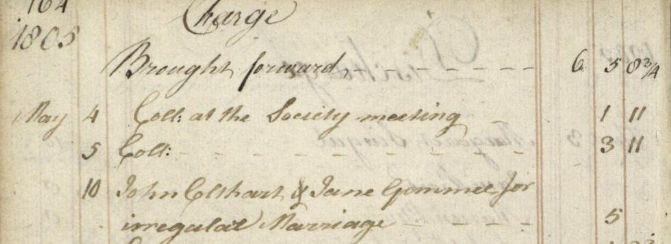 164
Charge
1805
Brought forward, 6 5 8 3/4
May 4 Coll: at the Society meeting 1 11
5 Coll: 3 11
10 John Colthart & Jane for
irregular Marriage 5